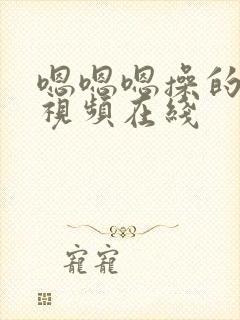 嗯嗯嗯操的
視頻在綫
寵寵